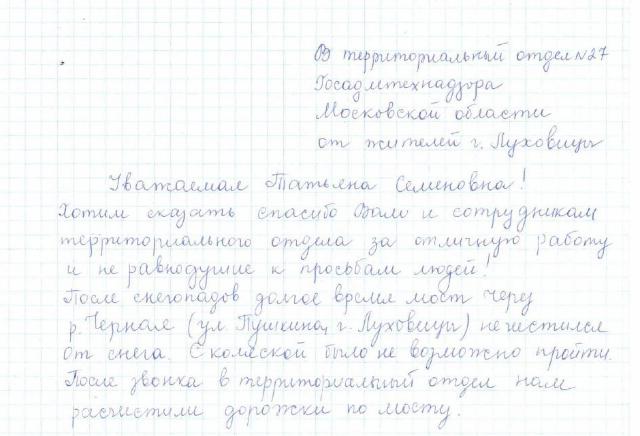 В территориальный отдел №27
Госадмтехнадзора
Московской области
от жителей г. Луховицы
Уважаемая Татьяна Семеновна!
Хотим сказать спасибо Вам и сотрудникам
территориального отдела за отличную работу
и не равнодушие к просьбам людей!
После снегопадов долгое время мост через
р. Черная (ул. Пушкина, г. Луховицы) не чистился
от снега. С коляской было не возможно пройти.
После звонка в территориальный отдел нам
расчистили дорожки по мосту.